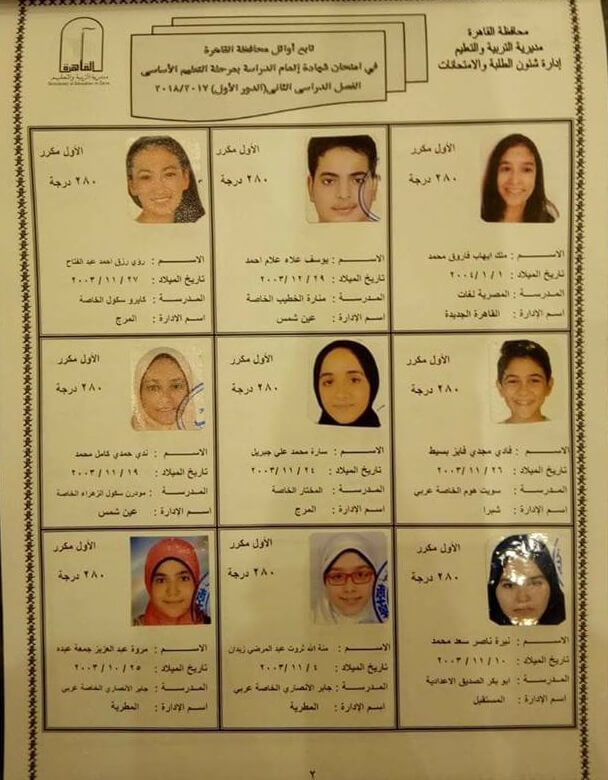 محافظة القاهرة
مديرية التربية والتعليم
إدارة شئون الطلبة والامتحانات
تابع أوائل محافظة القاهرة
في امتحان شهادة إتمام الدراسة بمرحلة التعليم الأساسى
الفصل الدراسى الثانى (الدور الأول) ٢٠١٨/٢٠١٧
القاهرة
مديرية التربية والتعليم
الأول مكرر
٢٨٠ درجة
الاســـــم : ملك ايهاب فاروق محمد
تاريخ الميلاد : ١ / ١ / ٢٠٠٤
المدرســـة : المصرية لغات
اسـم الإدارة : القاهرة الجديدة
الأول مكرر
٢٨٠ درجة
الاســـــم : يوسف علاء علام احمد
تاريخ الميلاد : ٢٩ / ١٢ / ٢٠٠٣
المدرســـة : منارة الخطيب الخاصة
اسـم الإدارة : عين شمس
الأول مكرر
٢٨٠ درجة
الاســـــم : رؤي رزق احمد عبد الفتاح
تاريخ الميلاد : ٢٧ / ١١ / ٢٠٠٣
المدرســـة : كايرو سكول الخاصة
اسـم الإدارة : المرج
الأول مكرر
٢٨٠ درجة
الاســـــم : فادي مجدي فايز بسيط
تاريخ الميلاد : ٢٦ / ١١ /٢٠٠٣
المدرســـة : سويت هوم الخاصة عربي
اسـم الإدارة : شبرا
الأول مكرر
٢٨٠ درجة
الاســـــم : سارة محمد علي جبريل
تاريخ الميلاد : ٢٤ / ١١ /٢٠٠٣
المدرســـة : المختار الخاصة
اسـم الإدارة : المرج
الأول مكرر
٢٨٠ درجة
الاســـــم : ندي حمدي كامل محمد
تاريخ الميلاد : ١٩ / ١١ / ٢٠٠٣
المدرســـة : مودرن سكول الزهراء الخاصة
اسـم الإدارة : عين شمس
الأول مكرر
٢٨٠ درجة
الاســـــم : نيرة ناصر سعد محمد
تاريخ الميلاد : ١٠ / ١١ / ٢٠٠٣
المدرســـة : ابو بكر الصديق الاعدادية
اسـم الإدارة : المستقبل
الأول مكرر
٢٨٠ درجة
الاســـــم : منة الله ثروت عبد المرضي زيدان
تاريخ الميلاد : ٤ / ١١ / ٢٠٠٣
المدرســـة : جابر الأنصاري الخاصة عربي
اسـم الإدارة : المطرية
الأول مكرر
٢٨٠ درجة
الاســـــم : مروة عبد العزيز جمعة عبده
تاريخ الميلاد : ٢٥ / ١٠ / ٢٠٠٣
المدرســـة : جابر الأنصاري الخاصة عربي
اسـم الإدارة : المطرية
٢